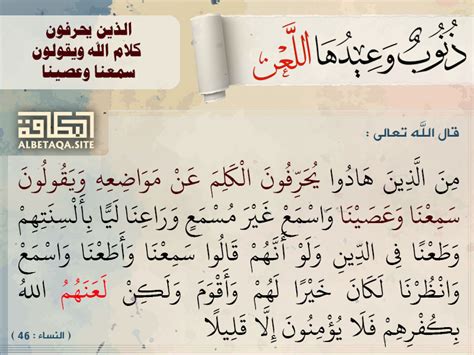 ذُنُوبٌ وَعِيدُهَا اللَّعْن
الذين يحرفون
كلام الله ويقولون
سمعنا وعصينا
البطاقة
ALBETAQA.SITE
قال اللَّه تعالى :
مِنَ الَّذِينَ هَادُوا يُحَرِّفُونَ الْكَلِمَ عَنْ مَوَاضِعِهِ وَيَقُولُونَ
سَمِعْنَا وَعَصَيْنَا وَاسْمَعْ غَيْرَ مُسْمَعٍ وَرَاعِنَا لَيًّا بِأَلْسِنَتِهِمْ
وَطَعْنًا فِي الدِّينِ وَلَوْ أَنَّهُمْ قَالُوا سَمِعْنَا وَأَطَعْنَا وَاسْمَعْ
وَانْظُرْنَا لَكَانَ خَيْرًا لَهُمْ وَأَقْوَمَ وَلَكِنْ لَعَنَهُمُ اللهُ
بِكُفْرِهِمْ فَلَا يُؤْمِنُونَ إِلَّا قَلِيلًا
( النساء : 46 )